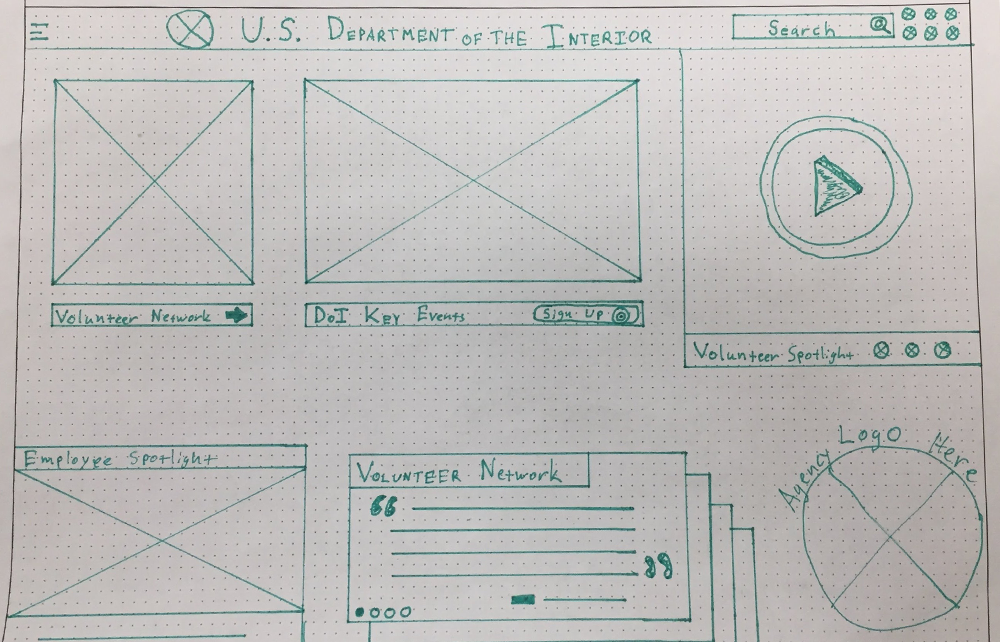 U.S. DEPARTMENT OF THE INTERIOR
Search
Volunteer Network
DoI Key Events
Sign Up
Volunteer Spotlight
Employee Spotlight
VOLUNTEER Network
Agency Logo Here